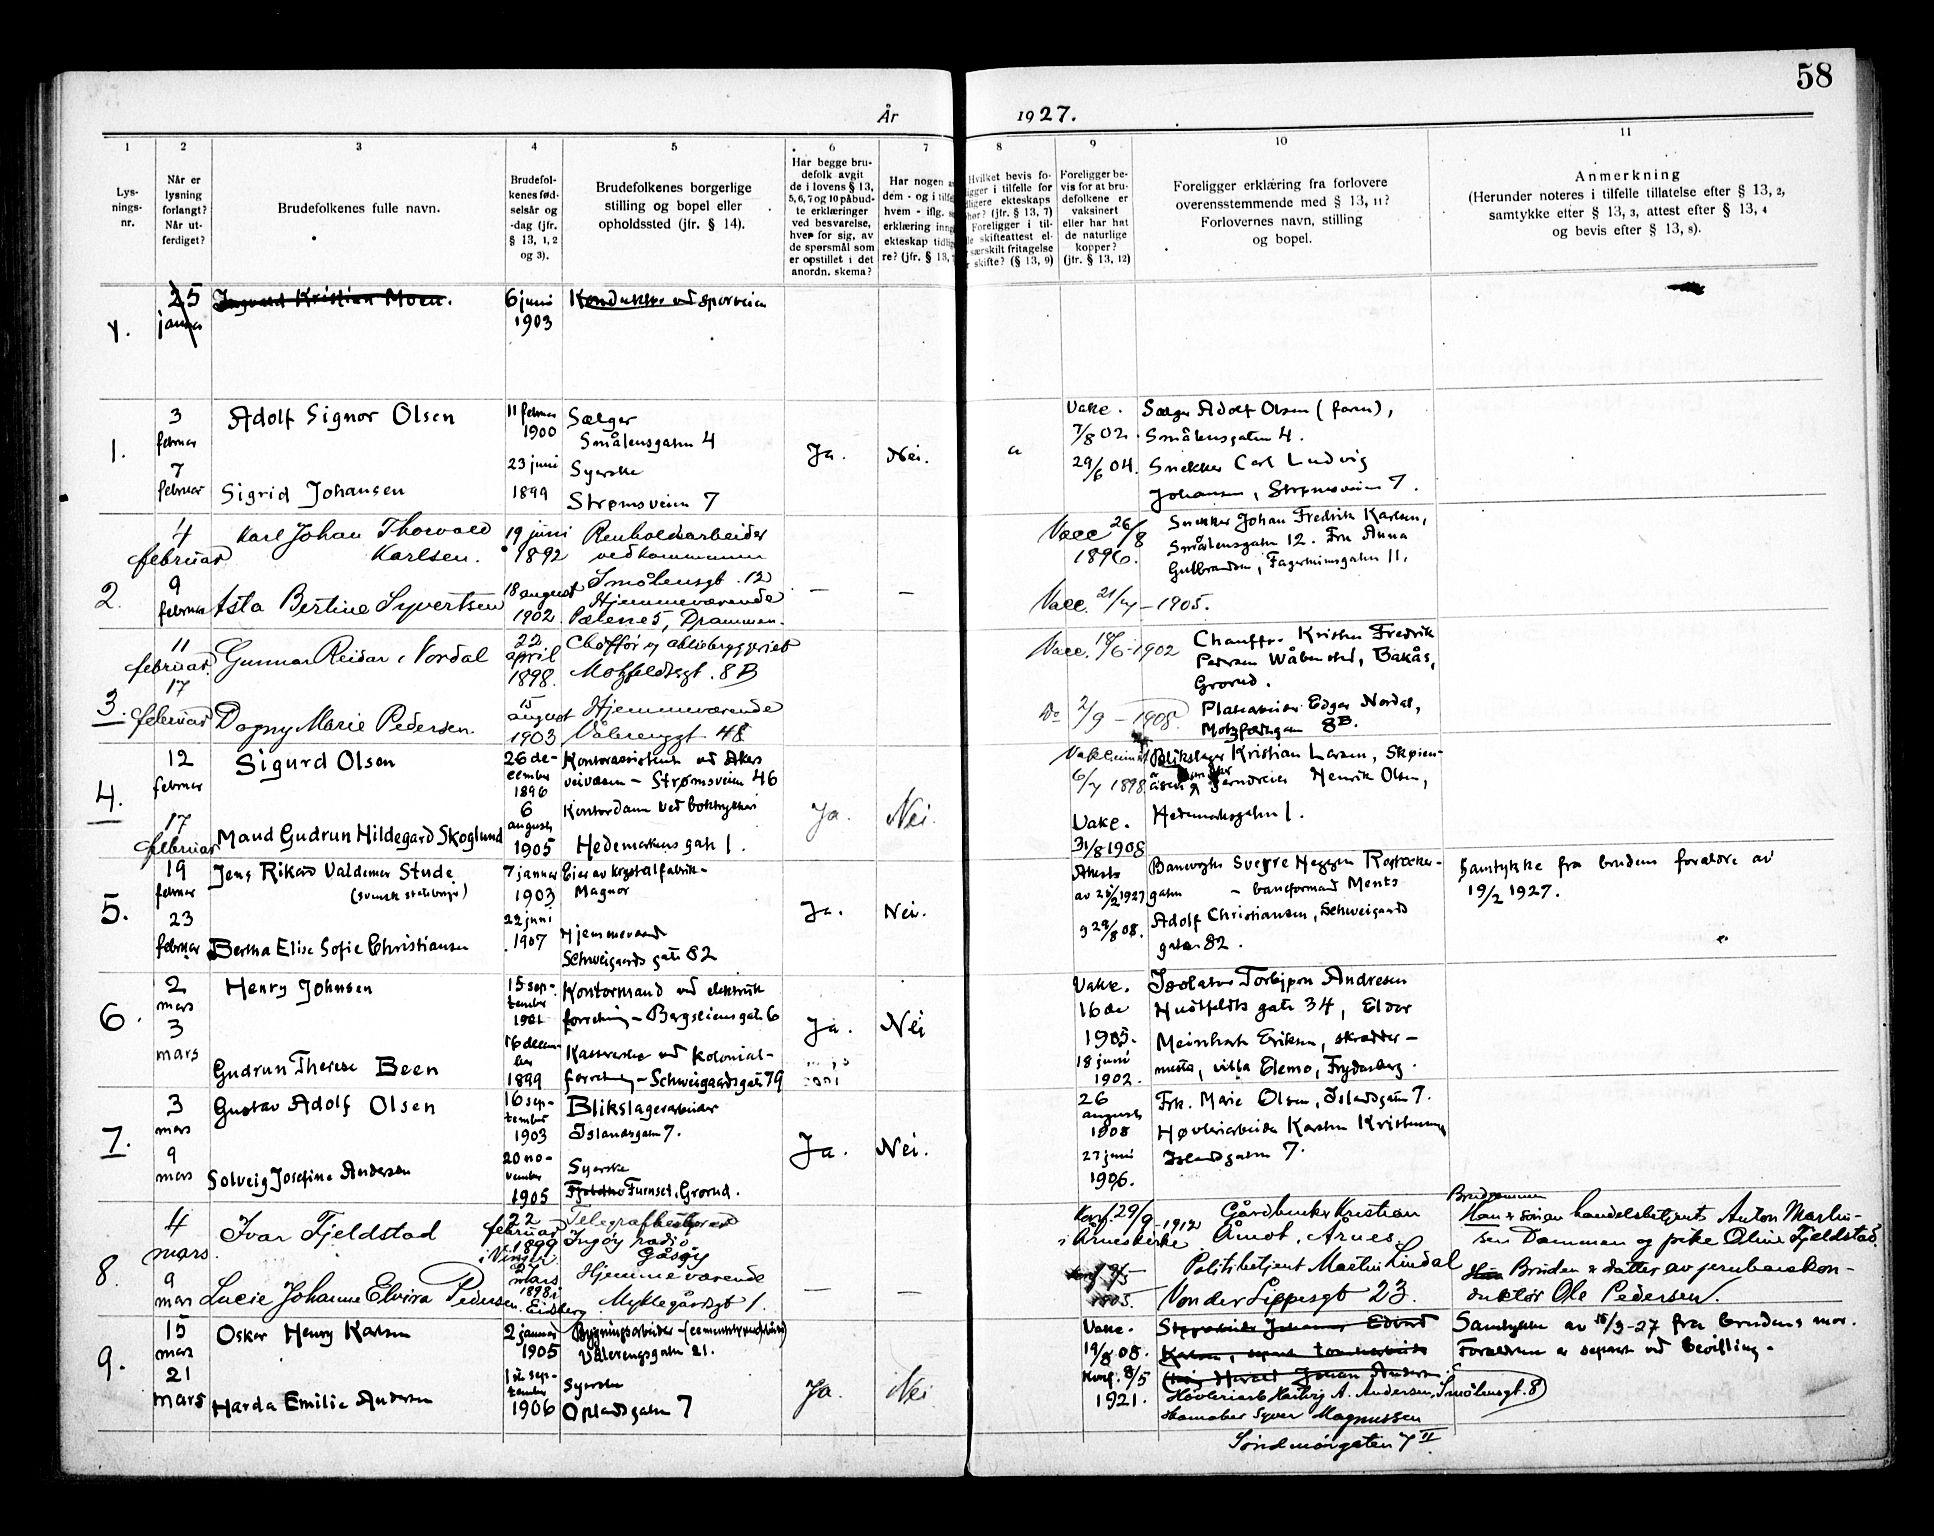 58
År 1927.
1
Lys-
nings-
nr.
2
Når er
lysning
forlangt?
Når ut-
ferdiget?
3
Brudefolkenes fulle navn.
4
Brudefol-
kenes fød-
selsår og
-dag (jfr.
§ 13, 1, 2
og 3).
5
Brudefolkenes borgerlige
stilling og bopel eller
opholdssted (jfr. § 14).
6
Har begge bru-
defolk avgit
de i lovens § 13,
5, 6, 7 og 10 påbud-
te erklæringer
ved besvarelse,
hver for sig, av
de spørsmål som
er opstillet i det
anordn. skema?
7
Har nogen
dem - og i tilf
hvem - iflg.
erklæring inng
ekteskap tidl
re? (jfr. § 13,
8
Hvilket bevis fo-
ligger i tilfelle for
dligere ekteskaps
hør? (jfr. § 13, 7)
Foreligger i til-
le skifteattest el-
særskilt fritagelse
skifte? (§ 13, 9)
9
Foreligger be-
vis for at bru-
defolkene er
vaksinert
eller har hat
de naturlige
kopper?
(jfr. § 13, 12)
10
Foreligger erklæring fra forlovere
overensstemmende med § 13, 11?
Forlovernes navn, stilling
og bopel.
11
Anmerkning
(Herunder noteres i tilfelle tillatelse efter § 13, 2,
samtykke efter § 13, 3, attest efter § 13, 4
og bevis efter § 13, 8).
25
januar
Ingvard Kristian Moen.
6 juni
1903
Konduktør ved sporveien
1.
3
februar
7
februar
Adolf Signor Olsen
Sigrid Johansen
11 februar
1900
23 juni
1899
Sælger
Smålensgaten 4
Syerske
Strømsveien 7
Ja.
Nei.
a
Vakc.
7/8 02.
29/6 04.
Sælger Adolf Olsen (faren),
Smålensgaten 4.
Snekker Carl Ludvig
Johansen, Strømsveien 7.
2.
4
februar
9
februar
Karl Johan Thorvald
Karlsen.
Asta Bertine Syvertsen
19 juni
1892
18 august
1902
Renholdsarbeider
ved kommunen
Smålensgt. 12
Hjemmeværende
Pælene 5, Drammen.
—
—
Vacc 26/8
1896.
Vacc. 21/7 – 1905.
Snekker Johan Fredrik Karlsen,
Smålensgaten 12. Fru Anna
Gulbrandsen, Fagerheimsgaten 11.
3.
11
februar.
17
februar
Gunnar Reidar Nordal
Dagny Marie Pedersen.
22
april
1898.
15
august
1903
Motzfeldtsgt. 8B
Hjemmeværende
Vålerenggt 48
Vacc. 18/6 – 1902
Do 2/9 – 1908.
Chauffør Kristen Fredrik
Pedersen Bakås,
Grorud.
Edgar Nordal,
8B.
4.
12
februar
17
februar
Sigurd Olsen
Maud Gudrun Hildegard Skoglund
26 de-
cember
1896
6
august
1905
Kontorassistent ved Akers
veivæsen – Strømsveien 46
Kontordame ved boktrykkeri
Hedemarkens gate 1.
Ja.
Nei.
6/7 1898
Vakc.
31/8 1908
Blikslager Kristian Larsen, Skøien-
Henrik Olsen,
Hedemarksgaten 1.
5.
19
februar
23
februar
Jens Rikard Valdemar Stude
(svensk statsborger)
Bertha Elise Sofie Christiansen
7 januar
1903
22 juni
1907
Eier av krystalfabrik –
Magnor
Hjemmeværende
Schweigaards gate 82
Ja.
Nei.
Attest
av 23/2 1927
9 29/8 08.
Banevogter Sverre Heggen Rostocker-
gaten – baneformand Mentz
Adolf Christiansen, Schweigaards
gaten 82.
Samtykke fra brudens forældre av
19/2 1927.
6.
2
mars
3
mars
Henry Johnsen
Gudrun Therese Been
15 sep-
tember
1901
16 decem-
ber
1899
Kontormand ved elektrisk
forretning – Bergsliensgate 6
Kasserske ved kolonial-
forretning – Schweigaardsgate 79
Ja.
Nei
Vakc.
16 de
1905.
18 juni
1902.
Isolatør Torbjørn Andresen
Huitfeldts gate 34, Eldor
Meinhart Eriksen, skrædder-
mester, villa Elemo, Frydenberg.
7.
3
mars
9
mars
Gustav Adolf Olsen
Solveig Josefine Andersen
16 sep-
tember
1903
20 no-
vember
1905
Blikslagerarbeider
Islandsgaten 7.
Syerske
Furuset, Grorud.
Ja.
Nei.
26
august
1908
27 juni
1906.
Frk. Marie Olsen, Islandsgaten 7.
Høvleriarbeider Karsten Kristensen
Islandsgaten 7.
8.
4
mars.
9
mars
Ivar Fjeldstad
Lucie Johanne Elvira Pedersen.
22
februar
1899
i Vinger.
27
mars
1898 i
Eidsberg
Telegrafbestyrer
Ingøy radio
Gåsøy
Hjemmeværende
Myklegårdsgt 1.
—
—
Konf. 29/9 – 1912
i Årnes kirke
1903.
Gårdbruker Kristian
Åmot, Årnes.
Politibetjent Martin Lindal
Von der Lippesgt 23.
Brudgommen
Han er sønn av handelsbetjent Anton Martin-
sen Dammen og pike Oline Fjeldstad.
Bruden er datter av jernbanekon-
duktør Ole Pedersen.
9.
15
mars
21
mars
Oskar Henry Karlsen
Harda Emilie Andersen
2 januar
1905
1ste sep-
tember
1906
Bygningsarbeider –
Vålerengsgaten 21.
Syerske
Oplandsgaten 7
Ja.
Nei
Vakc.
19/8 08.
Konf. 8/5
1921.
Høvleriarb. Hartvig A. Andersen, Smålensgt. 8
Syver Magnussen
Søndmørsgaten 7 II
Samtykke av 15/3-27 fra brudens mor.
Forældrene er separert ved bevilling.